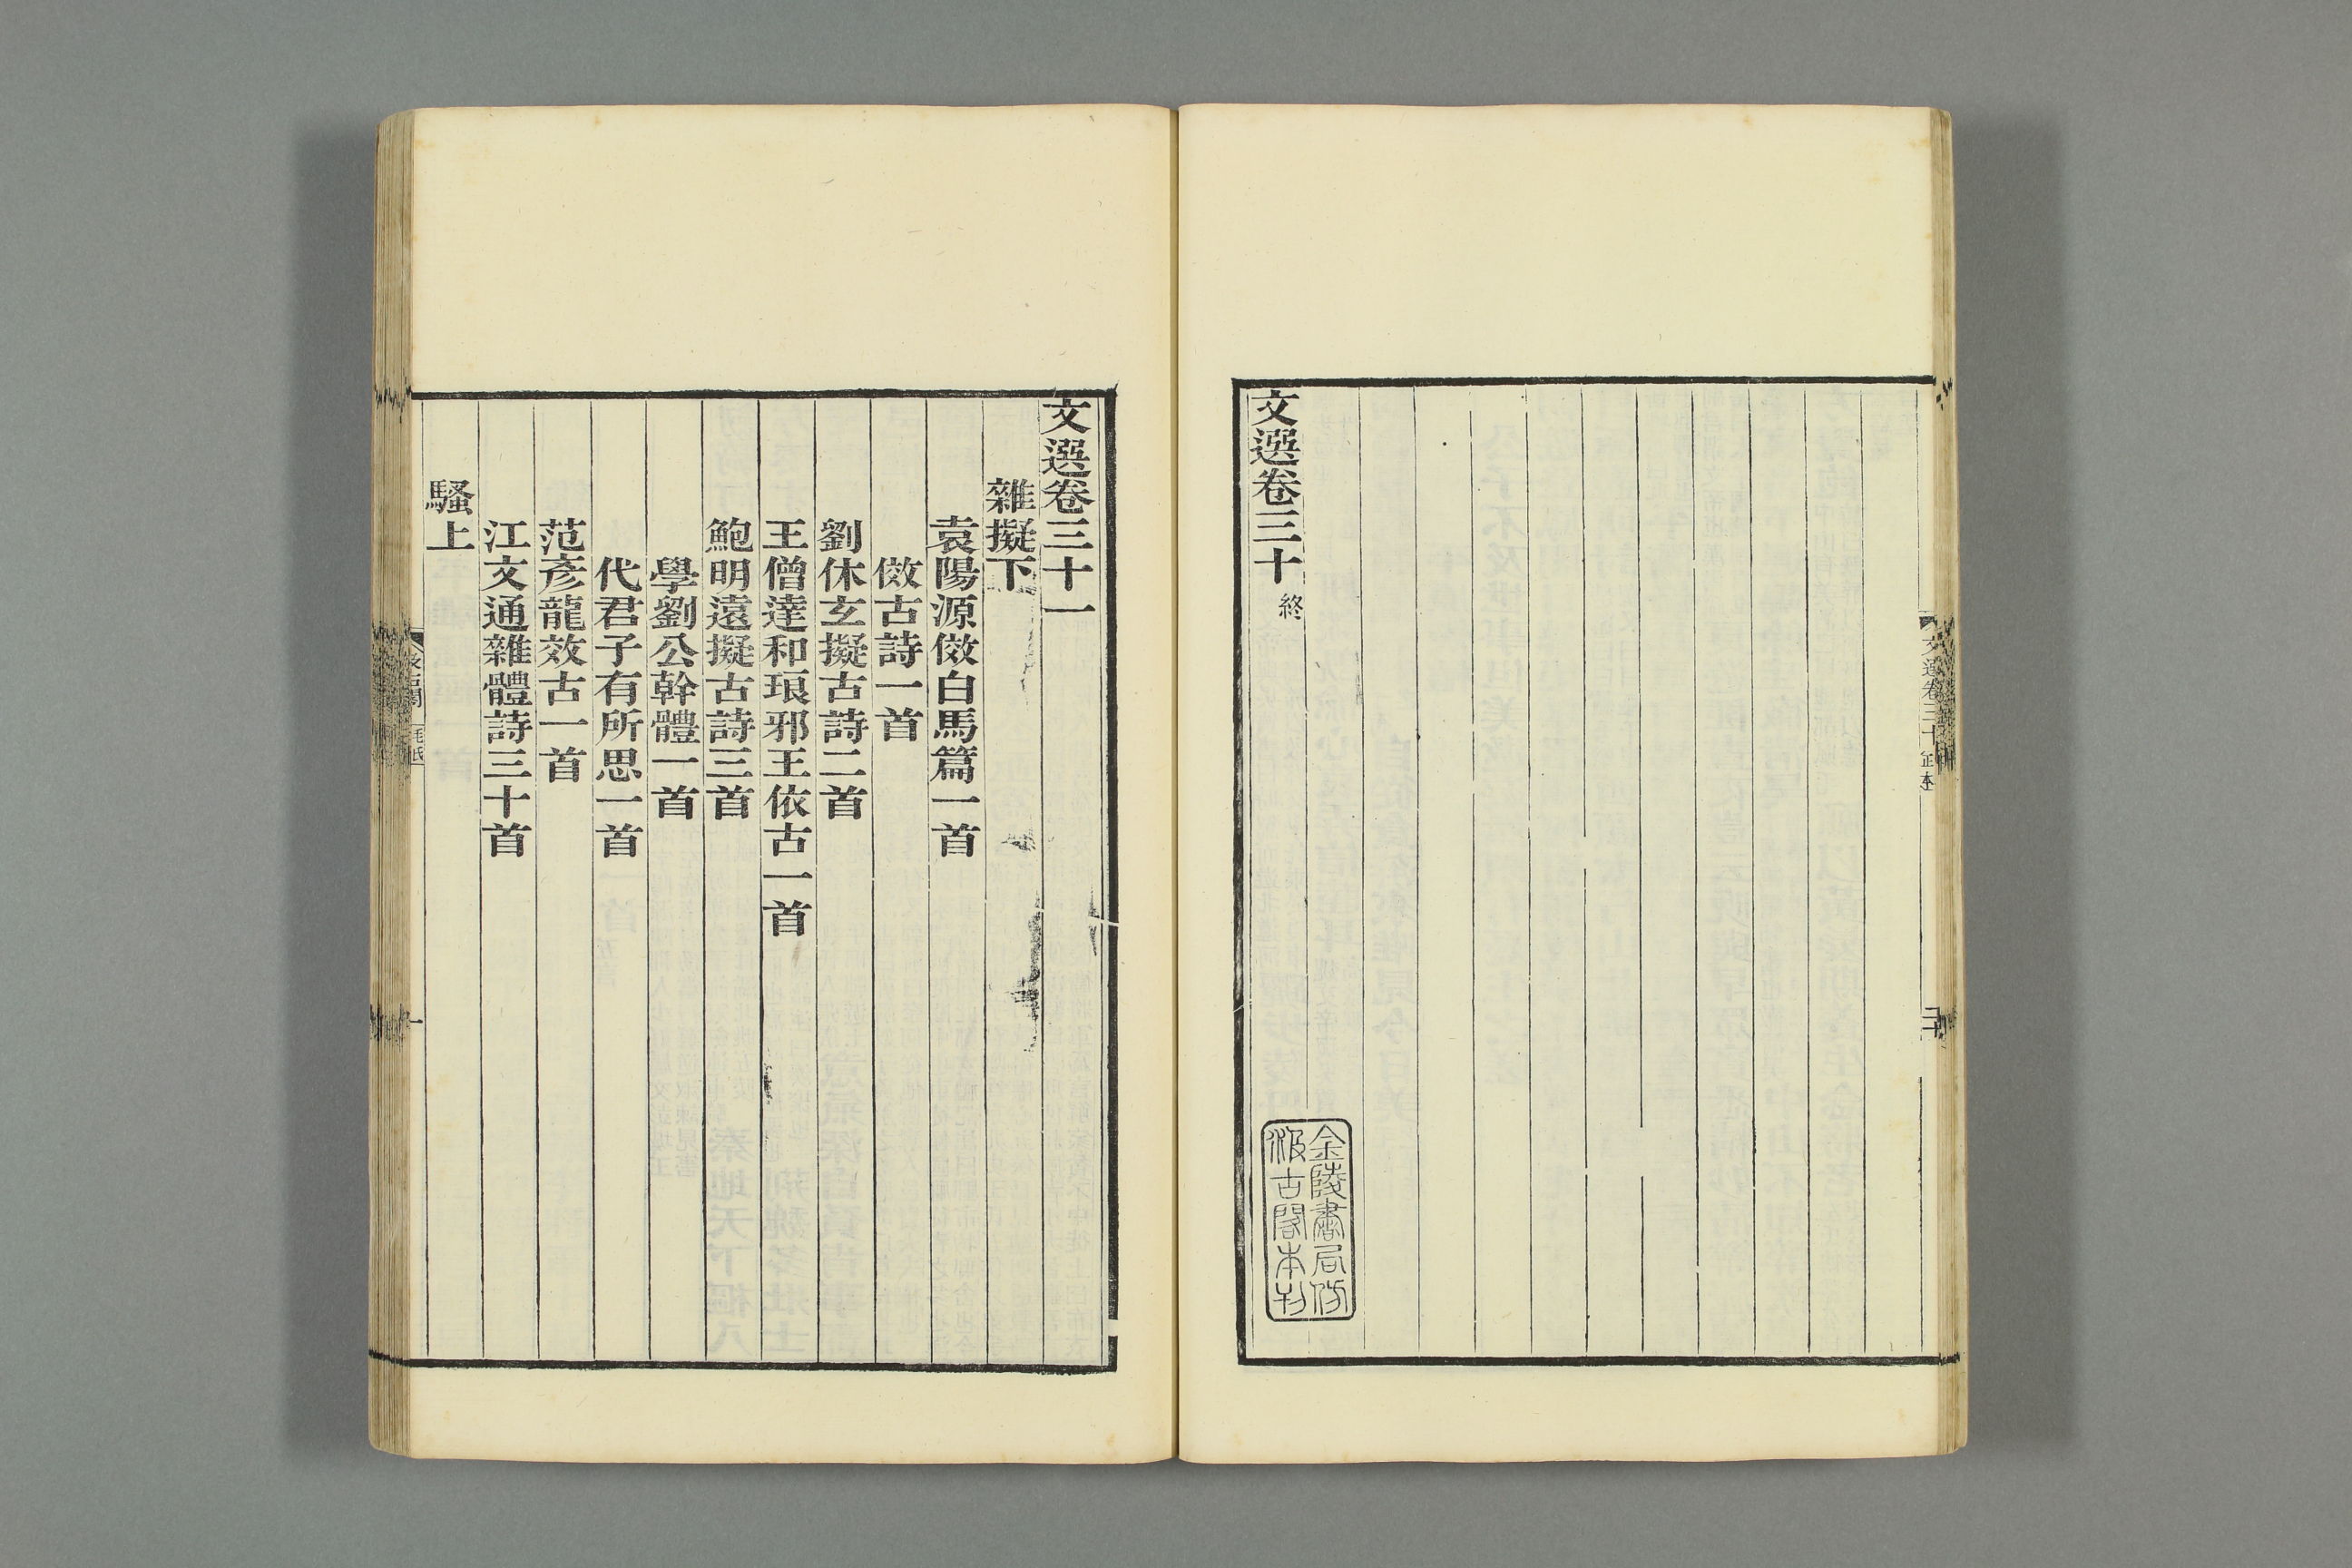 文選卷三十
二十
文選卷三十 終
金陵書局仿
汲古閣本刊
文選卷三十一
雜擬下
袁陽源傚白馬篇一首
傚古詩一首
劉休玄擬古詩二首
王僧達和琅邪王依古一首
鮑明遠擬古詩三首
學劉公幹體一首
代君子有所思一首
范彥龍效古一首
江文通雜體詩三十首
騷上
一